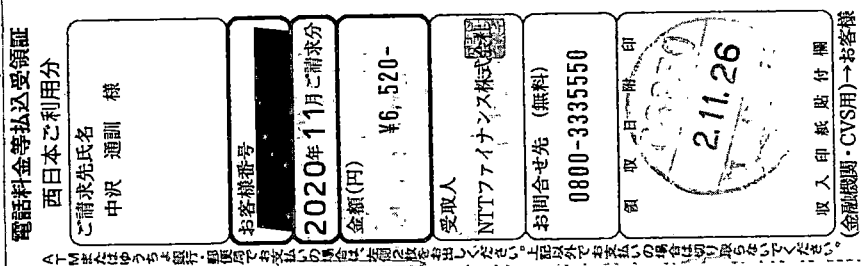 電話料金等払込受領証
西日本ご利用分
ご請求先氏名
中沢 通訓 様
お客様番号
2020年11月ご請求分
金額(円)
¥6,520-
受取人
NTTファイナンス株式会社
お問合せ先 (無料)
0800-3335550
領収日附印
2.11.26
収入印紙貼付欄
(金融機関・CVS用)→お客様
ATMまたはゆうちょ銀行・郵便局でお支払いの場合は、左側2枚をお出しください。上記以外でお支払いの場合は切り取らないでください。